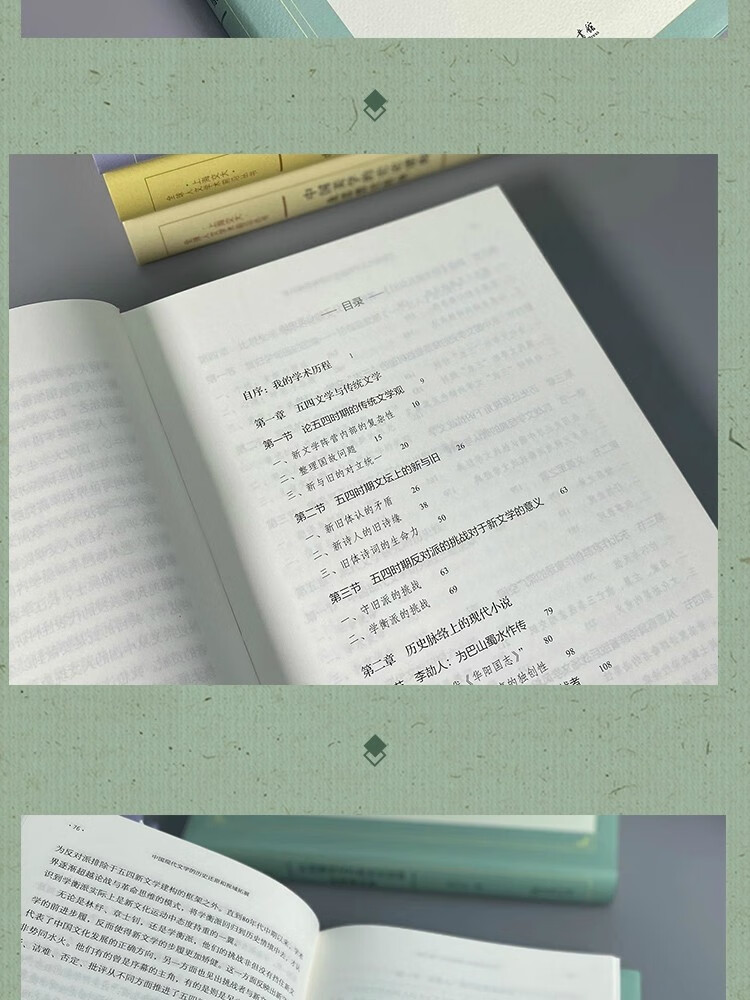 ·上海交大·
全球人文学术前沿丛书
·上海交大·
全球人文学术前沿丛书
目录
自序：我的学术历程 1
第一章 五四文学与传统文学
第一节 论五四时期的传统文学观 9
一、新文学阵营内部的复杂性 10
二、整理国故问题 15
三、新与旧的对立统一 20
第二节 五四时期文坛上的新与旧 26
一、新旧体认的矛盾 26
二、新诗人的旧诗缘 38
三、旧体诗词的生命力 50
第三节 五四时期反对派的挑战对于新文学的意义 63
一、守旧派的挑战 63
二、学衡派的挑战 69
第二章 历史脉络上的现代小说
节 李劼人：为巴山蜀水作传 79
《华阳国志》” 80
的独创性 98
108
·76·
中国现代文学的历史还原和视域拓展
为反对派排除于五四新文学建构的框架之外。直到80年代中期以来，学术
界逐渐超越论战与革命思维的模式，将学衡派回归到历史情境中去，方认
识到学衡派实际上是新文化运动中态度持重的一翼。
无论是林纾、章士钊，还是学衡派，他们的挑战非但没有挡住新文
学的前进步履，反而使得新文学的步履更加矫健。这一方面反映出新文
代表了中国文化发展的正确方向，另一方面也见出挑战者与新文
非势同水火。他们有的曾是序幕的主角，有的是则是
、诘难、否定、批评从不同方面推进了五四